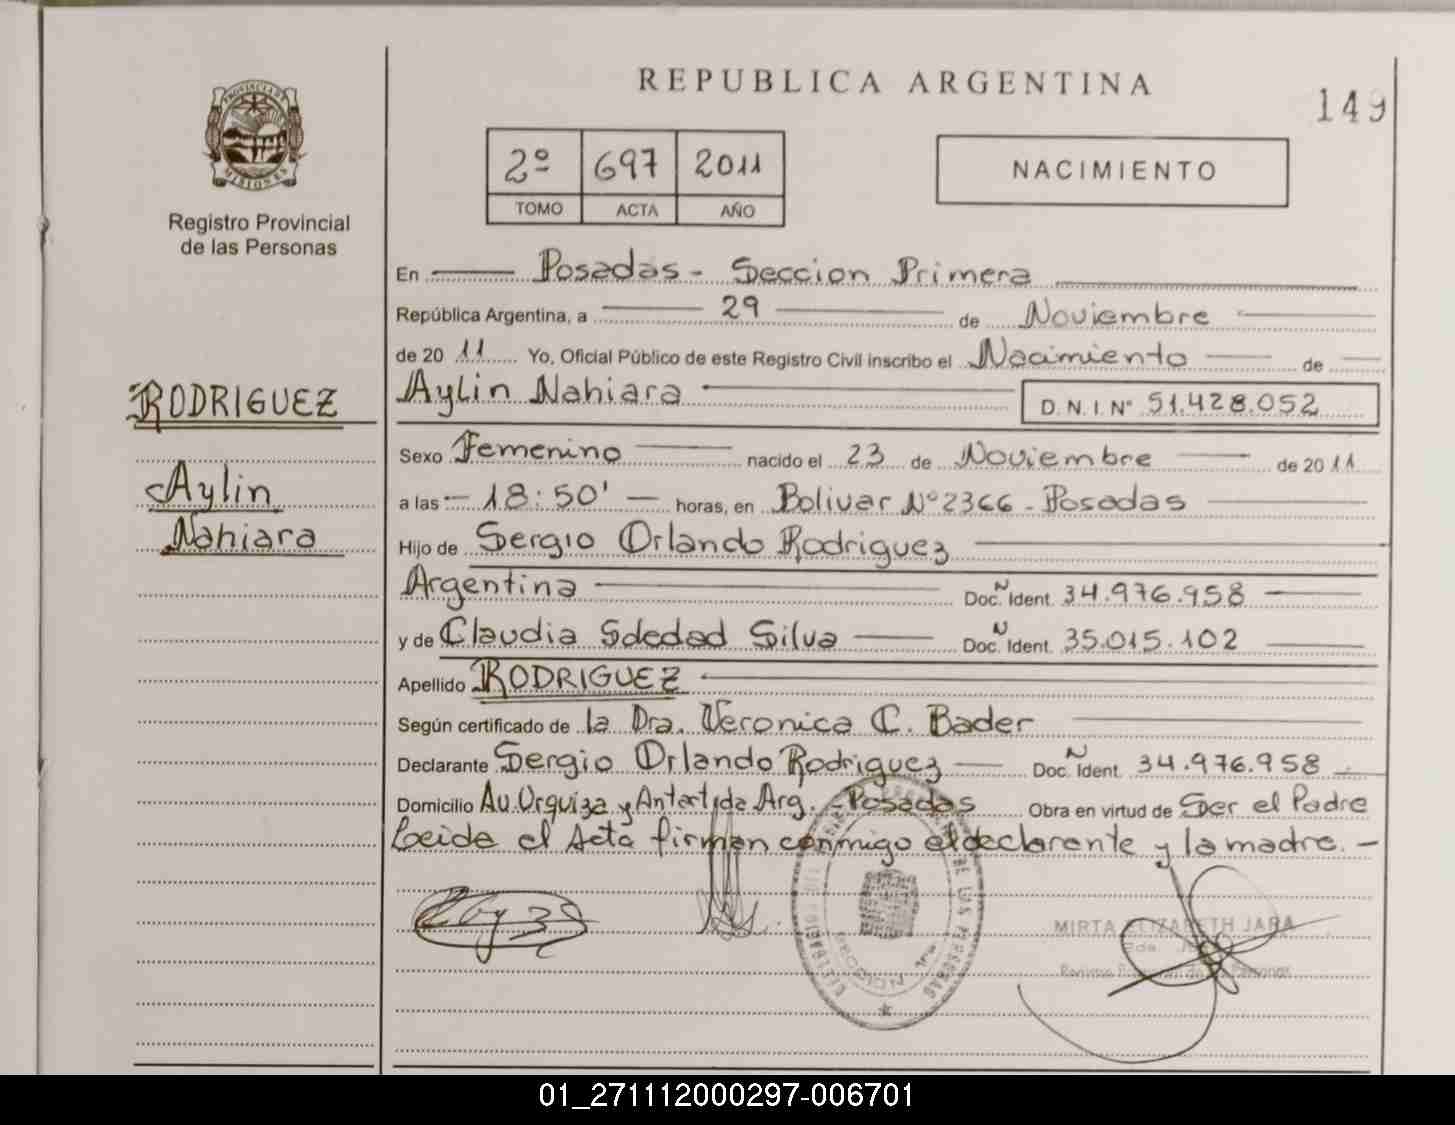 REPUBLICA ARGENTINA
149
PROVINCIA DE
MISIONES
Registro Provincial
de las Personas
2º 697 2011
TOMO ACTA AÑO
NACIMIENTO
RODRIGUEZ
Aylin
Nahiara
En Posadas - Seccion Primera
República Argentina, a 29 de Noviembre
de 20 11 Yo, Oficial Público de este Registro Civil inscribo el Nacimiento de
Aylin Nahiara D.N.I.Nº 51.428.052
Sexo Femenino nacido el 23 de Noviembre de 20 11
a las - 18:50' - horas, en Bolivar Nº 2366 - Posadas
Hijo de Sergio Orlando Rodriguez
Argentina Doc. N Ident. 34.976.958
y de Claudia Soledad Silva Doc. N Ident. 35.015.102
Apellido RODRIGUEZ
Según certificado de la Dra. Veronica C. Bader
Declarante Sergio Orlando Rodriguez Doc. N Ident. 34.976.958
Domicilio Au. Urquiza y Antartida Arg. - Posadas Obra en virtud de Ser el Padre
Leida el Acta firman conmigo el declarante y la madre. -
DE LAS PERSONAS
SECCION 1ra
MIRTA ELIZABETH JARA
01_271112000297-006701